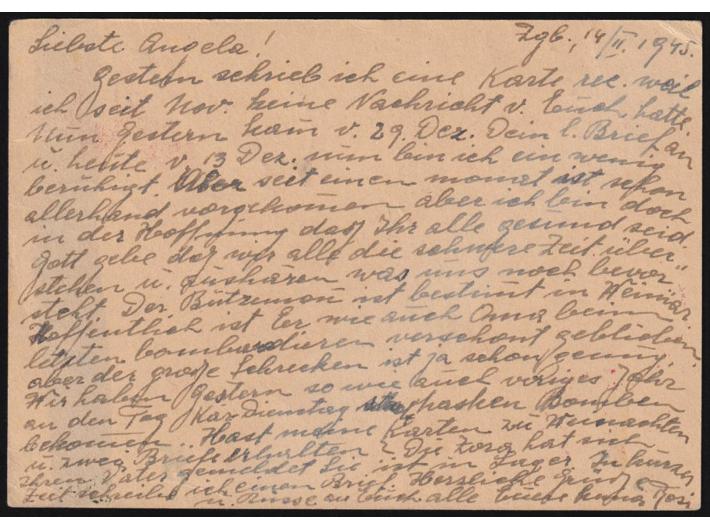 Liebste Angela! Zgb., 14/II. 1945.
Gestern schrieb ich eine Karte rec. weil
ich seit Nov. keine Nachricht v. Euch hatte.
Nun gestern kam v. 29. Dez. Dein l. Brief an
u. heute v. 13 Dez. nun bin ich ein wenig
beruhigt. Aber seit einen monat ist schon
allerhand vorgekomen aber ich bin doch
in der Hoffnung dass Ihr alle gesund seid.
Gott gebe daß wir alle die schwere Zeit über-
stehen u. aushären was uns noch bevor
steht. Der Butzemon ist bestimt in Weimar.
Hoffentlich ist Er wie auch Oma beim
letzten bombardieren verschont geblieben,
aber der große Schrecken ist ja schon genug.
Wir haben gestern so wie auch voriges Jahr
an den Tag Kar Dienstag Bomben
bekomen. Hast meine Karten zu Weinachten
u. zwey Briefe erhalten? Die Zora hat sich
ihren Vater gemeldet Sie ist in Lager. In kurzer
Zeit schreibe ich einen Brief. Herzliche Grüße
u. Küsse an Euch alle Euere Resi